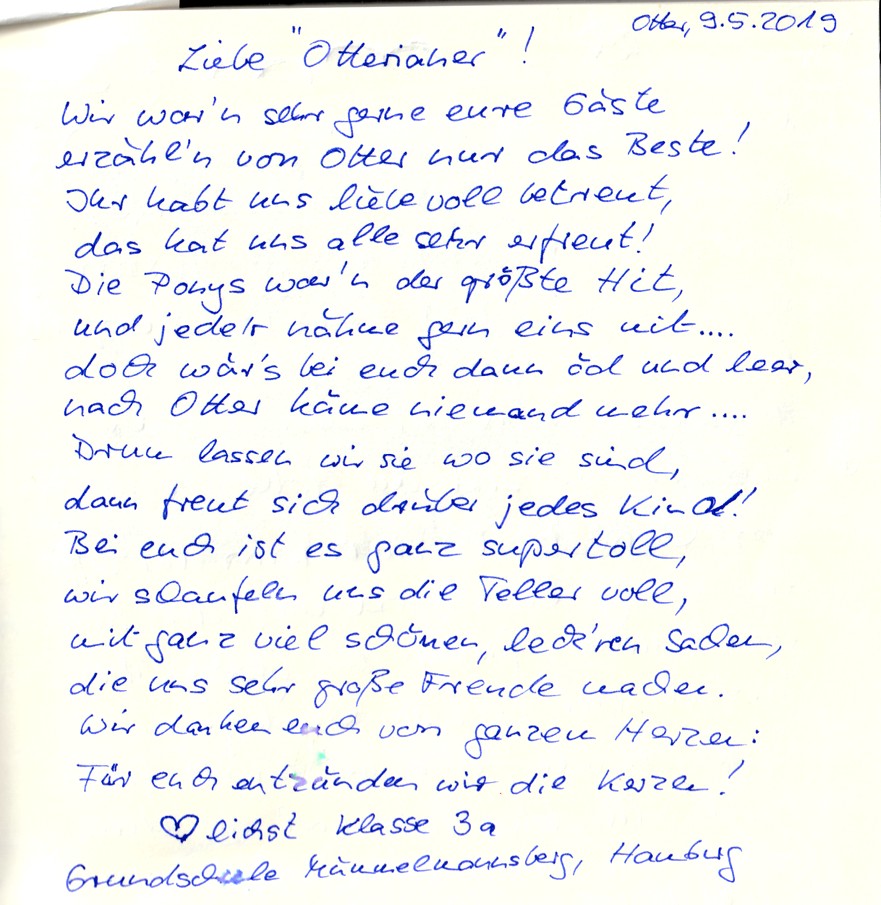 Otter, 9.5.2019
Liebe "Otterianer"!
Wir war'n sehr gerne eure Gäste
erzähl'n von Otter nur das Beste!
Ihr habt uns liebevoll betreut,
das hat uns alle sehr erfreut!
Die Ponys war'n der größte Hit,
und jede/r nähme gern eins mit....
doch wär's bei euch dann öd und leer,
nach Otter käme niemand mehr....
Drum lassen wir sie wo sie sind,
dann freut sich drüber jedes Kind!
Bei euch ist es ganz supertoll,
wir schaufeln uns die Teller voll,
mit ganz viel schönen, leck'ren Sachen,
die uns sehr große Freude machen.
Wir danken euch von ganzem Herzen:
Für euch entzünden wir die Kerzen!
♡lichst Klasse 3a
Grundschule Mümmelmannsberg, Hamburg